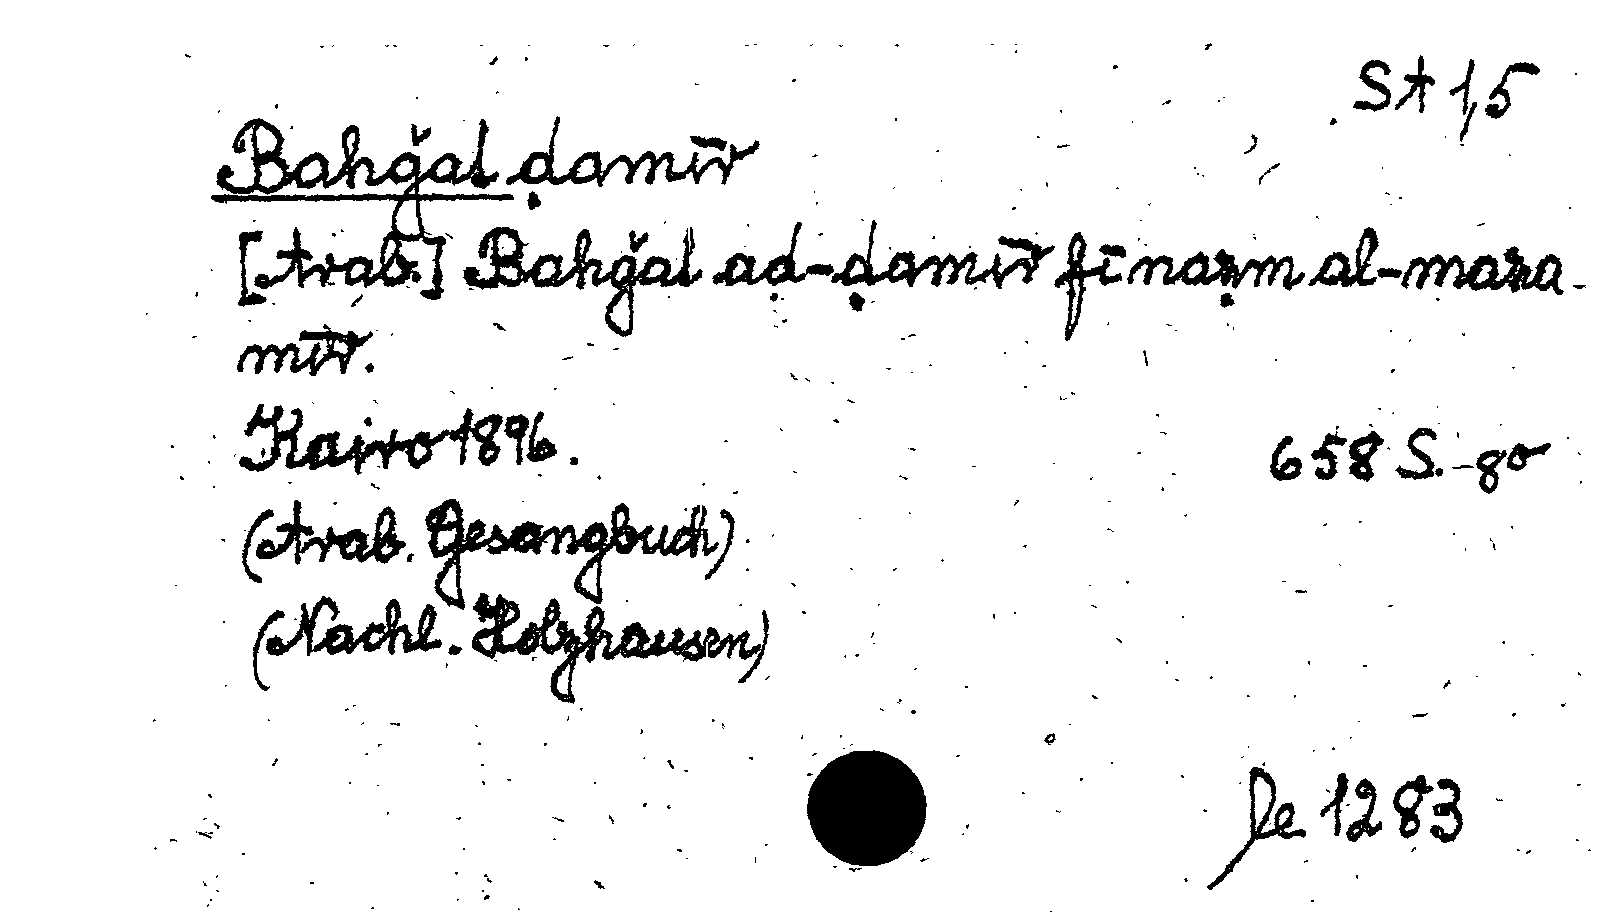 St 1,5
Bahǧal ḍamīr
[Arab.] Bahǧal aḍ-ḍamīr fī naẓm al-maza-
mīr.
Kairo 1896.
658 S. - 8o
(Arab. Gesangbuch)
(Nachl. Holzhausen)
De 1283